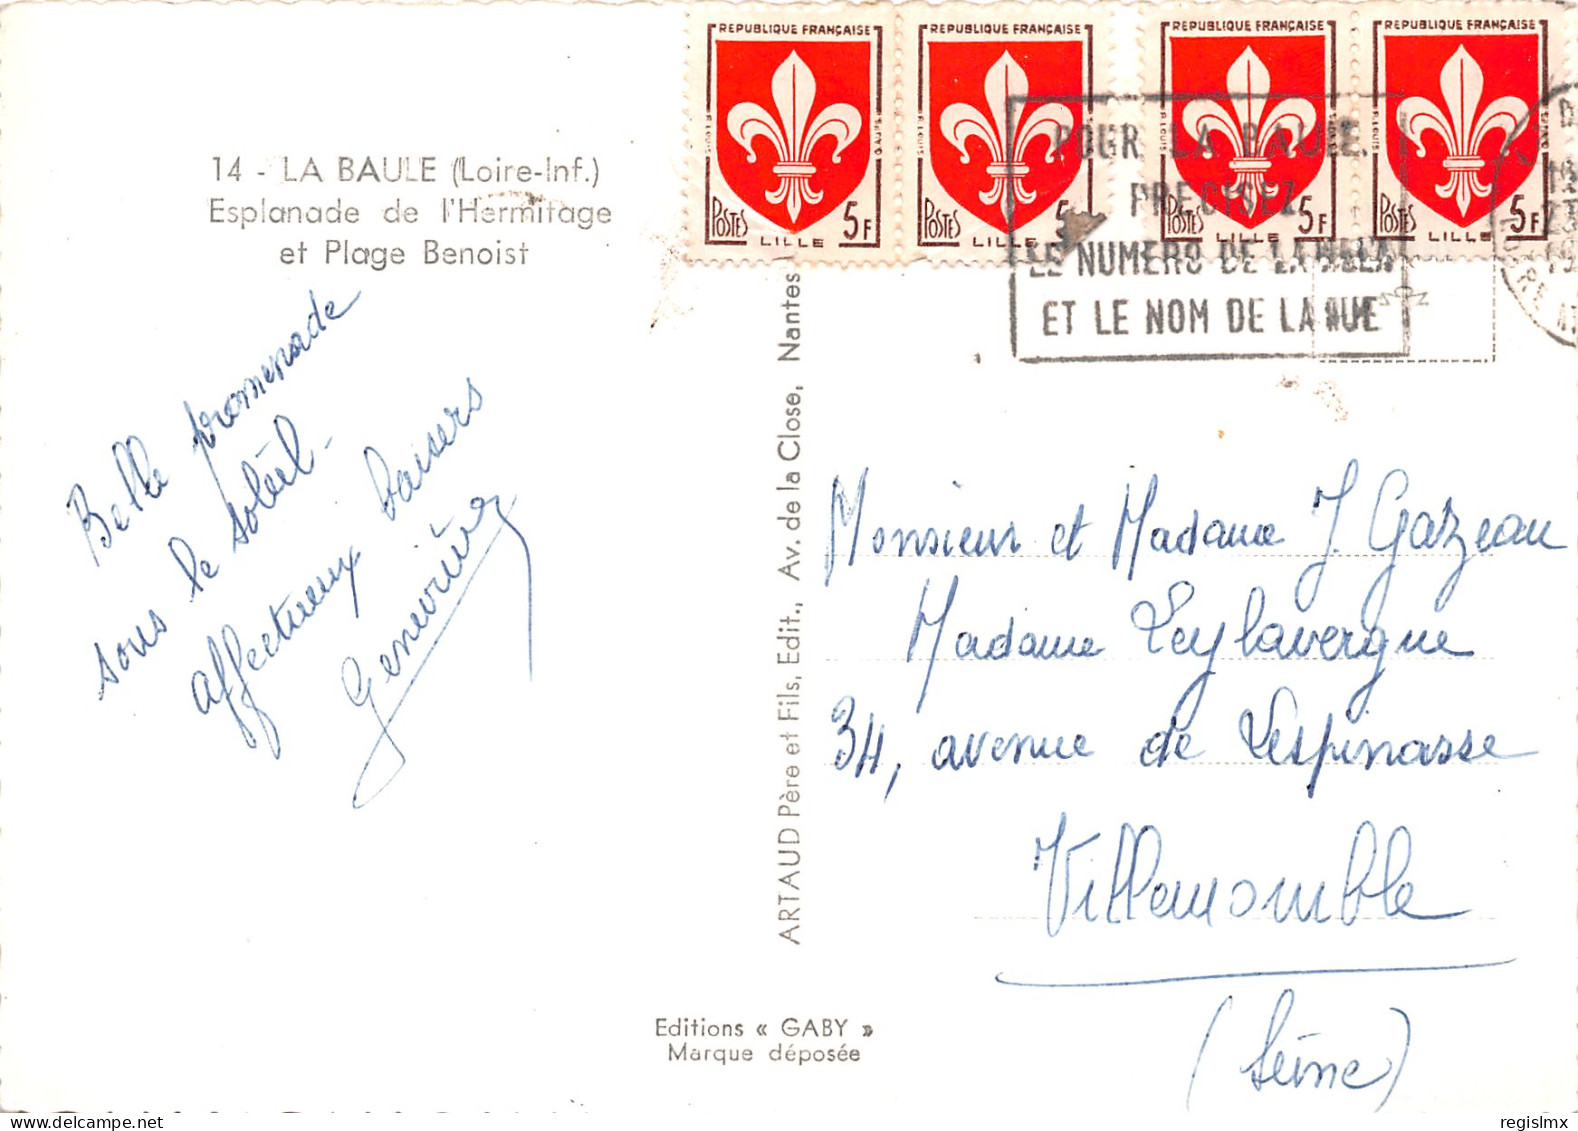 REPUBLIQUE FRANÇAISE
POSTES 5F
LILLE
REPUBLIQUE FRANÇAISE
POSTES 5
LILLE
REPUBLIQUE FRANÇAISE
POSTES 5F
LILLE
REPUBLIQUE FRANÇAISE
POSTES 5F
LILLE
POUR LA BAULE
PRECISEZ
LE NUMERO DE LA VILLA
ET LE NOM DE LA RUE
14 - LA BAULE (Loire-Inf.)
Esplanade de l'Hermitage
et Plage Benoist
Belle promenade
sous le soleil -
affectueux baisers
Geneviève
ARTAUD Père et Fils, Edit., Av. de la Close, Nantes
Monsieur et Madame J. Gazeau
Madame Leylavergne
34, avenue de Lespinasse
Villemomble
(Seine)
Editions « GABY »
Marque déposée
regislmx